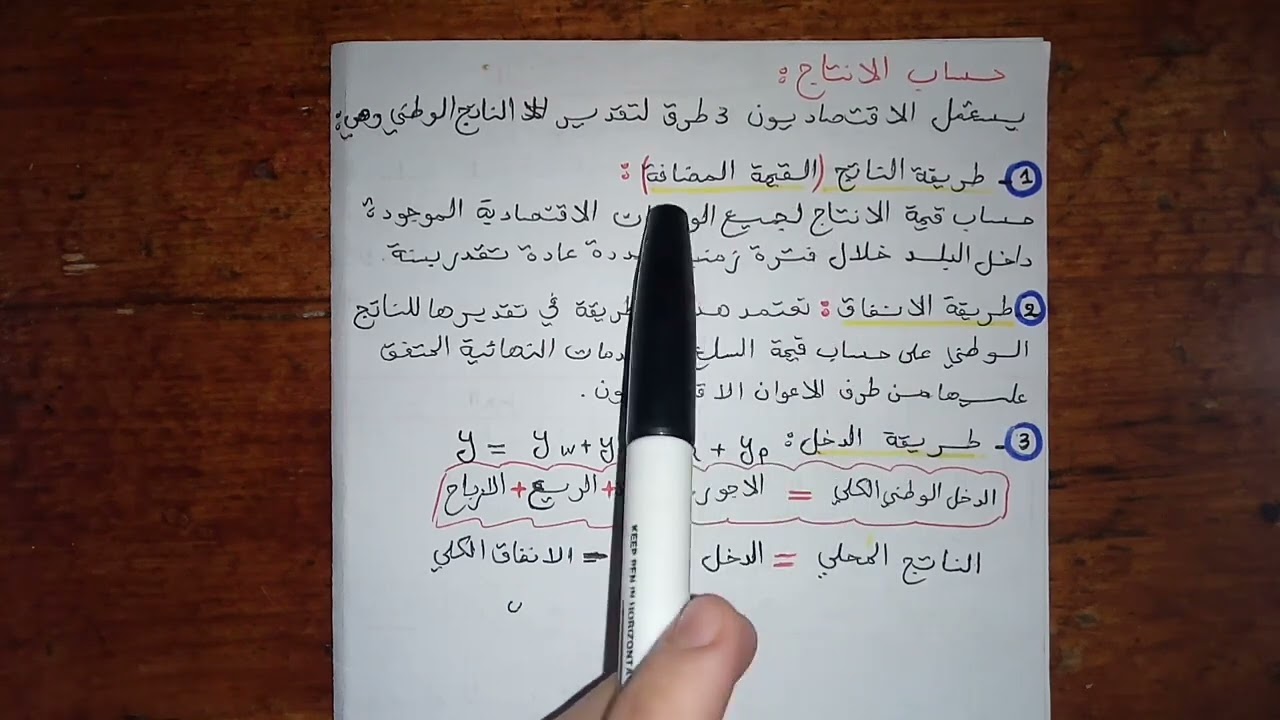 حساب الانتاج :
يستعمل الاقتصاديون 3 طرق لتقدير الناتج الوطني وهي :
1 - طريقة الناتج (القيمة المضافة) :
حساب قيمة الانتاج لجميع الاقتصادية الموجودة
داخل البلد خلال فترة عادة تقدر بسنة.
2 طريقة الانفاق : تعتمد في تقديرها للناتج
الوطني على حساب قيمة النهائية المتفق
عليها من طرف الاعوان .
3 - طريقة الدخل : y = yw + y + yp
الدخل الوطني الكلي = الاجور + الريع + الارباح
الناتج المحلي = الدخل = الانفاق الكلي
KEEP PEN IN HORIZONTA